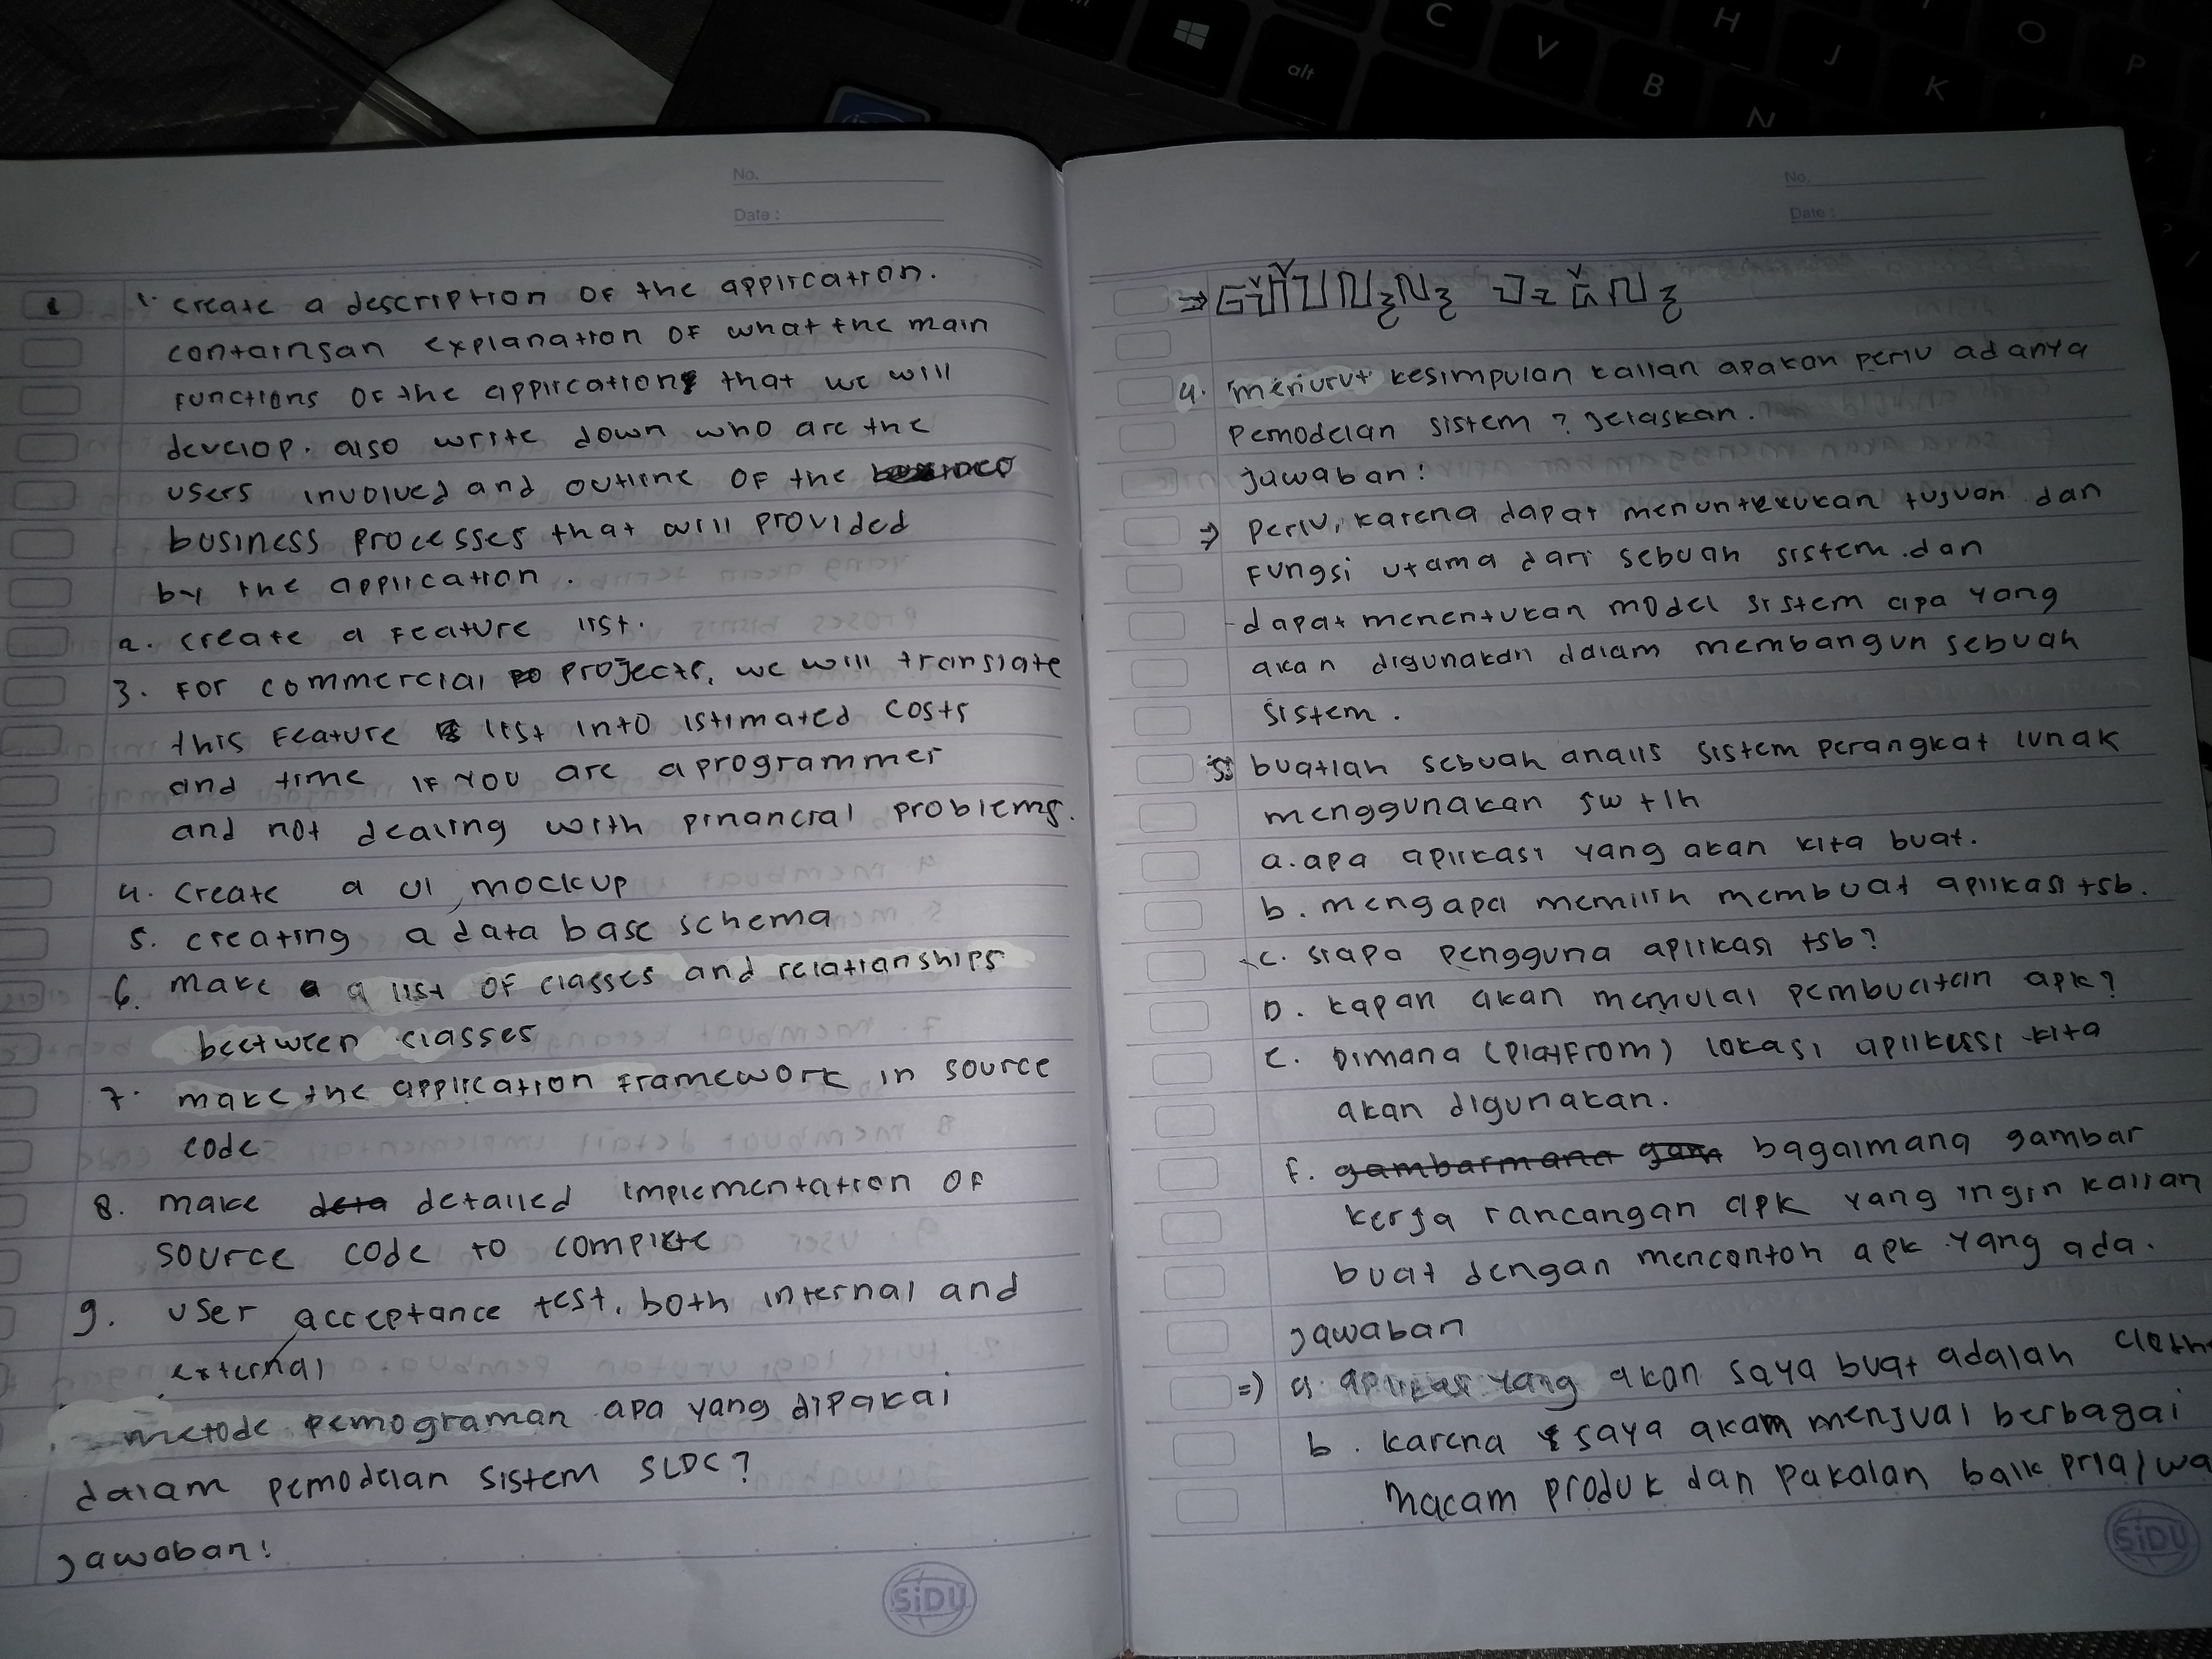 No.
Date :
1. create a description of the application.
containsan explanation of what the main
functions of the application that we will
develop. also write down who are the
users involved and outline of the
business processes that will provided
by the application.
2. create a feature list.
3. For commercial projects, we will translate
this feature list into istimated costs
and time if you are a programmer
and not dealing with pinancial problems.
4. create a UI mockup
5. creating a data base schema
6. make a list of classes and relationships
beetween classes
7. make the application framework in source
code
8. make detailed implementation of
source code to complete
9. user acceptance test, both internal and
external
metode pemograman apa yang dipakai
dalam pemodelan sistem SLDC?
jawaban!
SiDU
No.
Date :
4. menurut kesimpulan kalian apakah perlu adanya
pemodelan sistem? jelaskan.
jawaban!
⇒ perlu, karena dapat tujuan dan
fungsi utama dari sebuah sistem. dan
dapat menentukan model sistem apa yang
akan digunakan dalam membangun sebuah
sistem.
5. buatlah sebuah analis sistem perangkat lunak
menggunakan 5w+1h
a. apa aplikasi yang akan kita buat.
b. mengapa memilih membuat aplikasi tsb.
c. siapa pengguna aplikasi tsb?
D. kapan akan memulai pembuatan apk?
E. Dimana (platfrom) lokasi aplikasi kita
akan digunakan.
F. bagaimana gambar
kerja rancangan apk yang ingin kalian
buat dengan mencontoh apk yang ada.
jawaban
=) a. aplikasi yang akan saya buat adalah
b. karena saya akam menjual berbagai
macam produk dan pakaian baik pria/wa
SiDU
C
V
B
N
H
J
K
O
P
alt